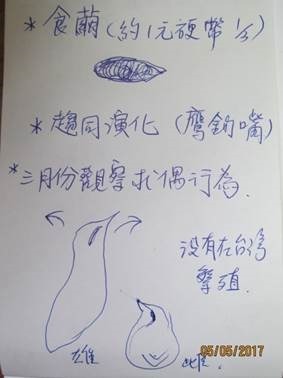 *食繭(約1元硬幣 1/3)
*趨同演化 (鷹鈎嘴)
*三月份觀察求偶行為.
没有在台湾
繁殖.
雄
雌.
05/05/2017